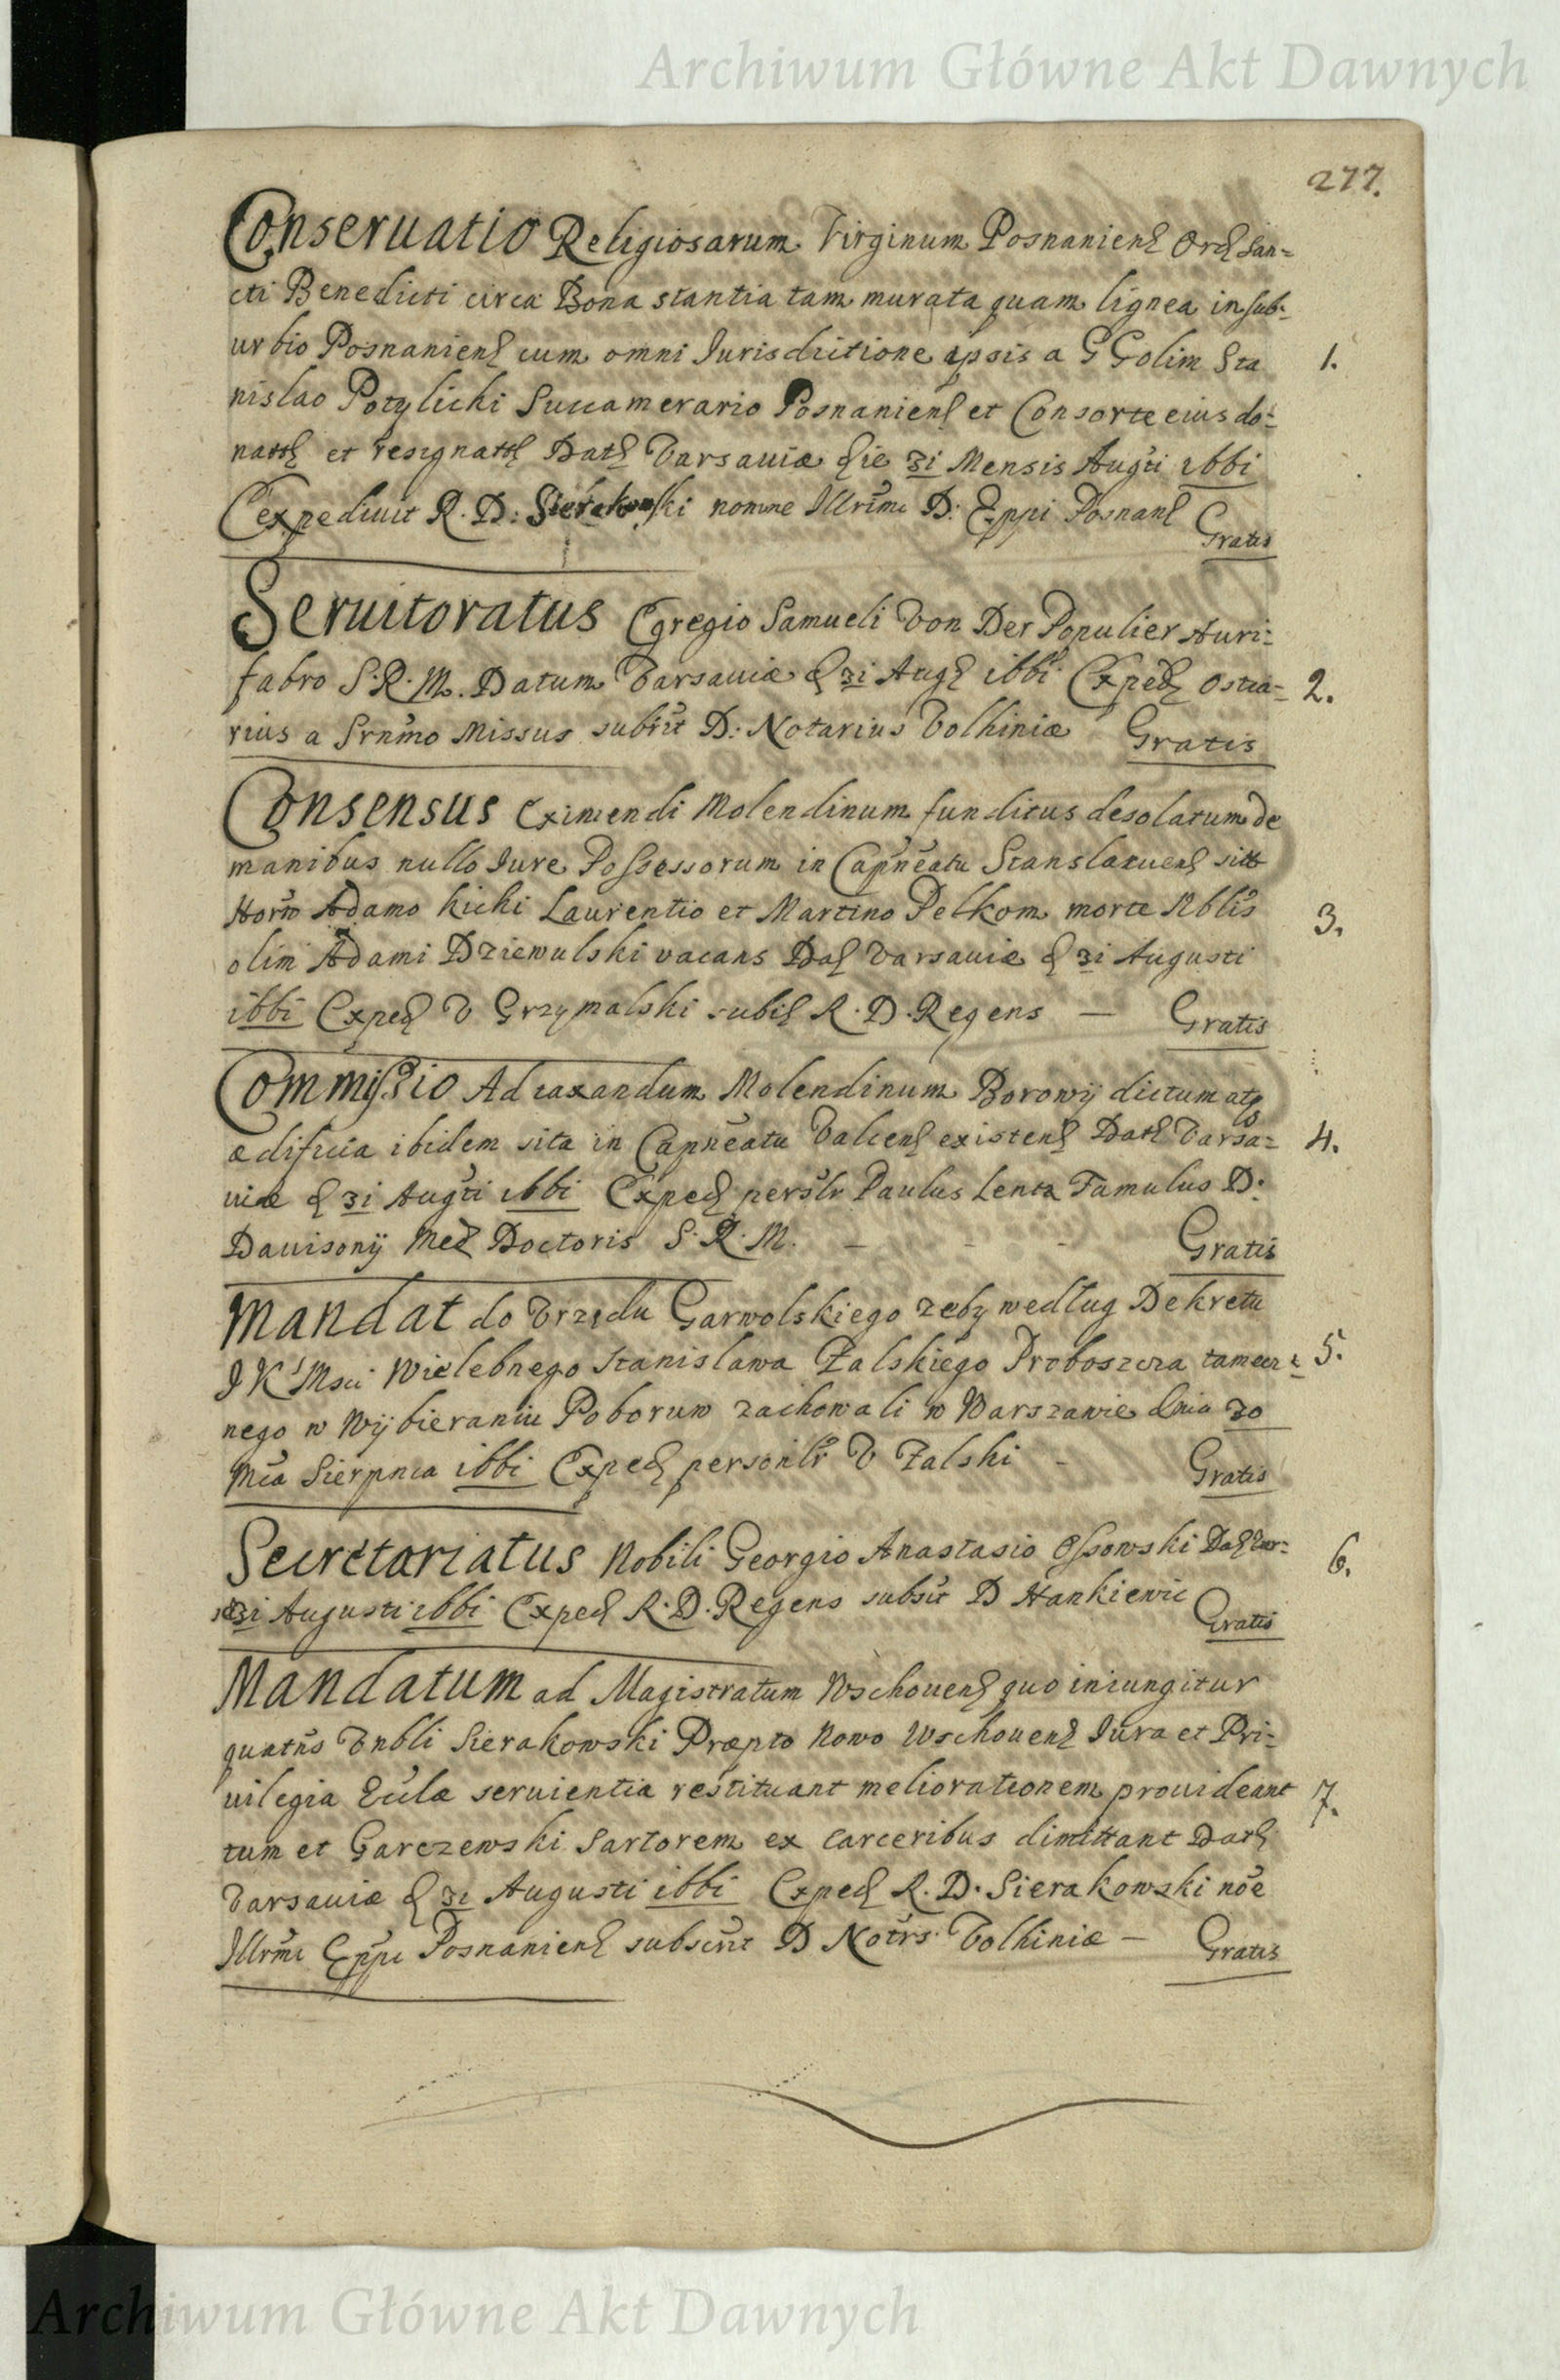 Archiwum Główne Akt Dawnych
277.
Conseruatio Religiosarum Virginum Posnaniens Ord San=
cti Benedicti circa Bona stantia tam murata quam lignea in sub=
urbio Posnaniens cum omni Jurisdictione ipsis a G G olim Sta
nislao Potylicki Succamerario Posnaniens et Consorte eius do=
natt et resignatt Dat Varsauiæ die 31 Mensis Augti 1661
Expediuit R. D: Sierakowski nomine Illrmi D: Eppi Posnan Gratis
1.
Seruitoratus Egregio Samueli Von Der Populier Auri=
fabro S. R. M. Datum Varsauiæ d 31 Aug 1661 Exped Ostia=
rius a Srnmo Missus subst D: Notarius Volhiniæ Gratis
2.
Consensus Eximendi Molendinum funditus desolatum de
manibus nullo Jure Possessorum in Capneatu Stanslauens sitt
Adamo Kicki Laurentio et Martino Pelkom morte Nblis
olim Adami Dziewulski vacans Dat Varsauiæ d 31 Augusti
1661 Exped V Grzymalski subs R. D. Regens — Gratis
3.
Commissio Ad taxandum Molendinum Borowÿ dictum atq
ædificia ibidem sita in Capneatu Valcens existens Dat Varsa=
uiæ d 31 Augti 1661 Exped persolr Paulus Lentz Famulus D:
Dauisonÿ Med Doctoris S. R. M. — - - Gratis
4.
Mandat do Vrzędu Garwolskiego zeby według Dekretu
J K Msci Wielebnego Stanisława Załskiego Proboszcza tamecz=
nego w Wÿbieraniu Poborum zachowali w Warszawie dnia 30
Mca Sierpnia 1661 Exped personlr V Załski - Gratis
5.
Secretariatus Nobili Georgio Anastasio Ossowski Dat Var=
31 Augusti 1661 Exped R. D. Regens subst D Hankiewic Gratis
6.
Mandatum ad Magistratum Wschouens quo iniungitur
quatns Vnbli Sierakowski Præpto Nowo Wschouens Jura et Pri=
uilegia Eclæ seruientia restituant meliorationem prouideant
tum et Garczewski Sartorem ex carceribus dimittant Dat
Varsauiæ d 31 Augusti 1661 Exped R. D. Sierakowski noe
Illrmi Eppi Posnaniens subscrit D Notrs Volhiniæ — Gratis
7.
Archiwum Główne Akt Dawnych